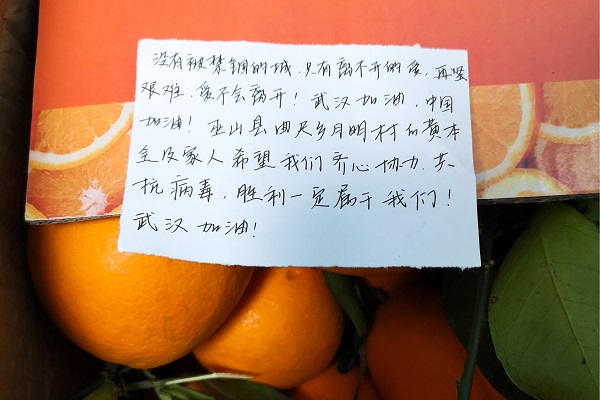 没有被禁锢的城，只有离不开的爱，再坚
艰难，爱不会离开！武汉加油，中国
加油！巫山县曲尺乡月明村的黄本
全及家人希望我们齐心协力，共
抗病毒，胜利一定属于我们！
武汉加油！